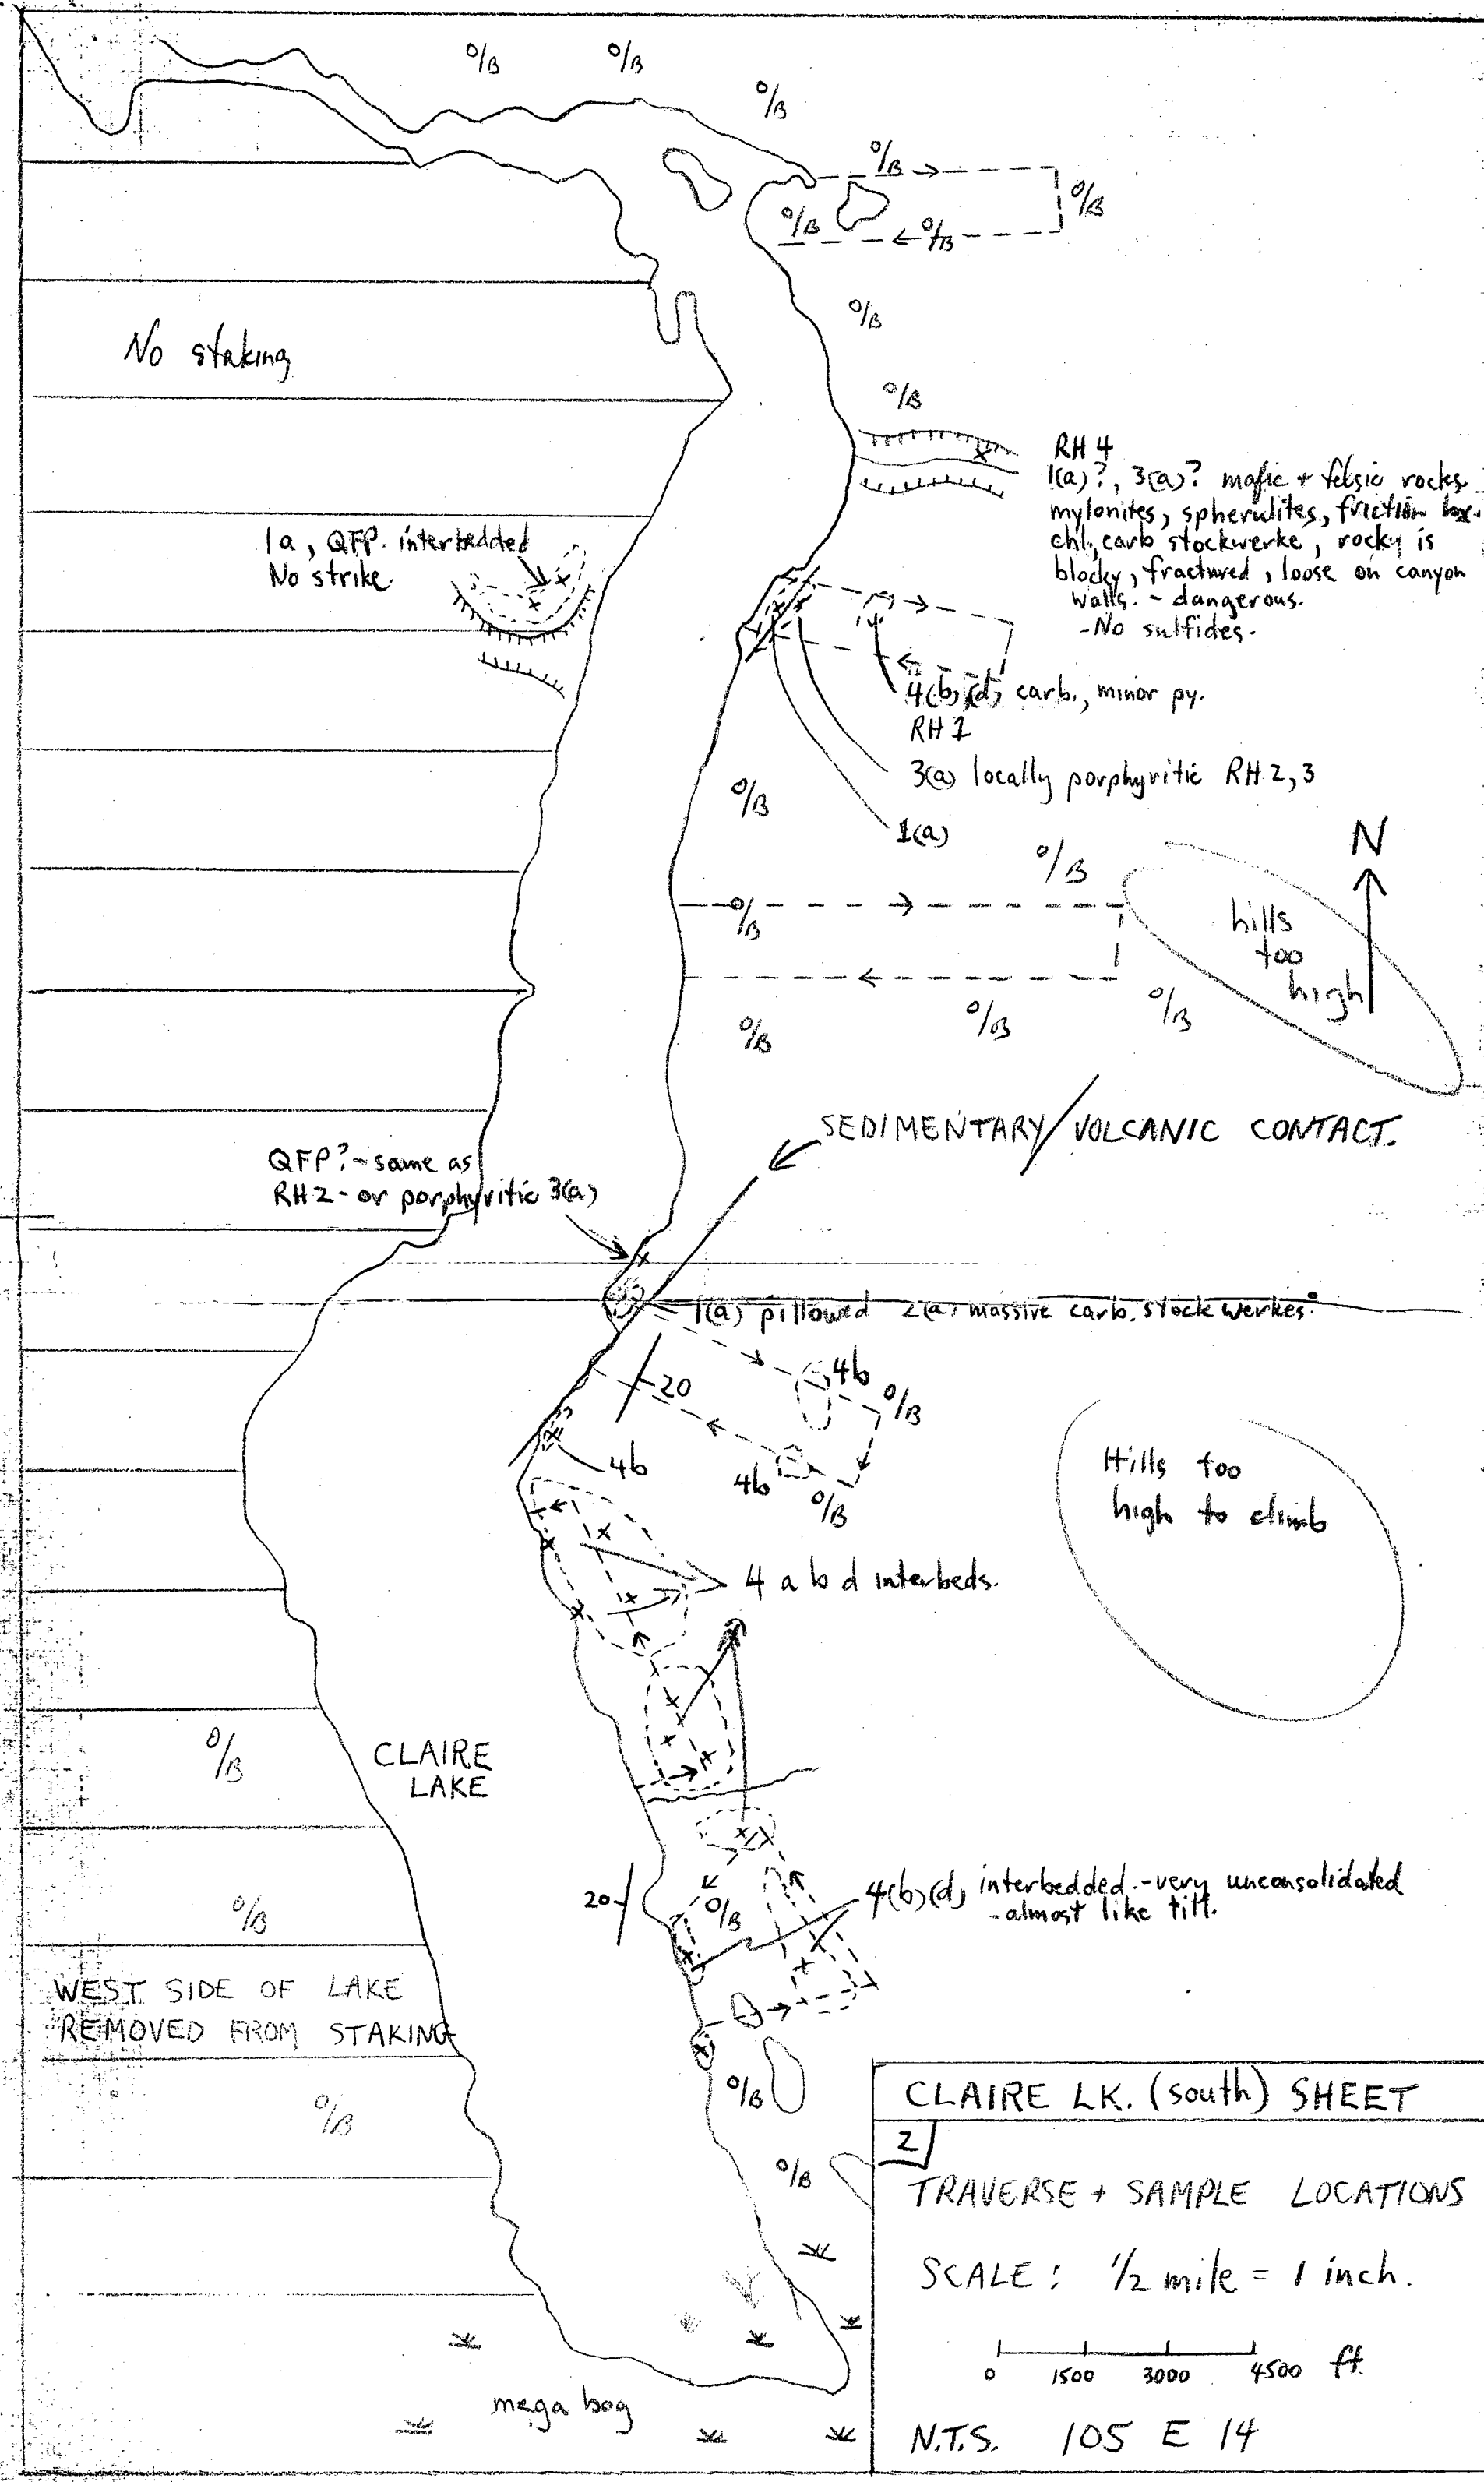 O/B O/B
O/B
O/B
O/B
O/B
O/B
O/B
No staking
O/B
RH 4
1(a)?, 3(a)? mafic + felsic rocks
mylonites, spherulites, friction
chl, carb stockwerke, rocky is
blocky, fractured, loose on canyon
walls. - dangerous.
-No sulfides.
1a, QFP. interbedded
No strike.
4(b)(d) carb., minor py.
RH 1
3(a) locally porphyritic RH 2, 3
1(a)
O/B
O/B
N
hills
too
high
O/B
O/B
O/B
O/B
SEDIMENTARY/VOLCANIC CONTACT.
QFP? - same as
RH2 - or porphyritic 3(a)
1(a) pillowed 2(a) massive carb. stockwerkes.
4b
20
O/B
4b
4b
O/B
Hills too
high to climb
4 a b d interbeds.
O/B
CLAIRE
LAKE
20
O/B
4(b)(d) interbedded. - very unconsolidated
- almost like till.
O/B
WEST SIDE OF LAKE
REMOVED FROM STAKING
O/B
O/B
O/B
mega bog
CLAIRE LK. (south) SHEET
2
TRAVERSE + SAMPLE LOCATIONS
SCALE: 1/2 mile = 1 inch.
0 1500 3000 4500 ft.
N.T.S. 105 E 14